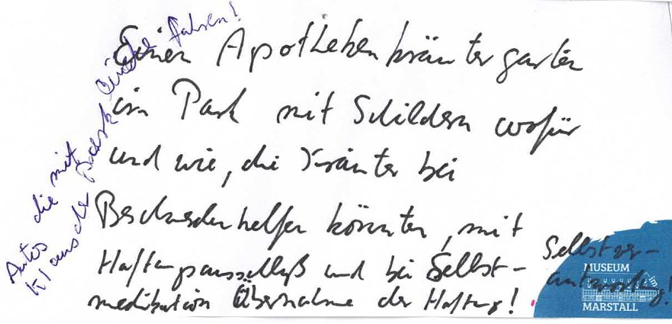 Einen Apothekenkräutergarten
im Park mit Schildern wofür
und wie, die Kräuter bei
Beschwerden helfen könnten, mit
Haftungsausschluß und bei Selbst-
medikation Übernahme der Haftung!
Selbstver-
antwortung!
Autos die mit
klassischer Musik fahren!
MUSEUM
MARSTALL